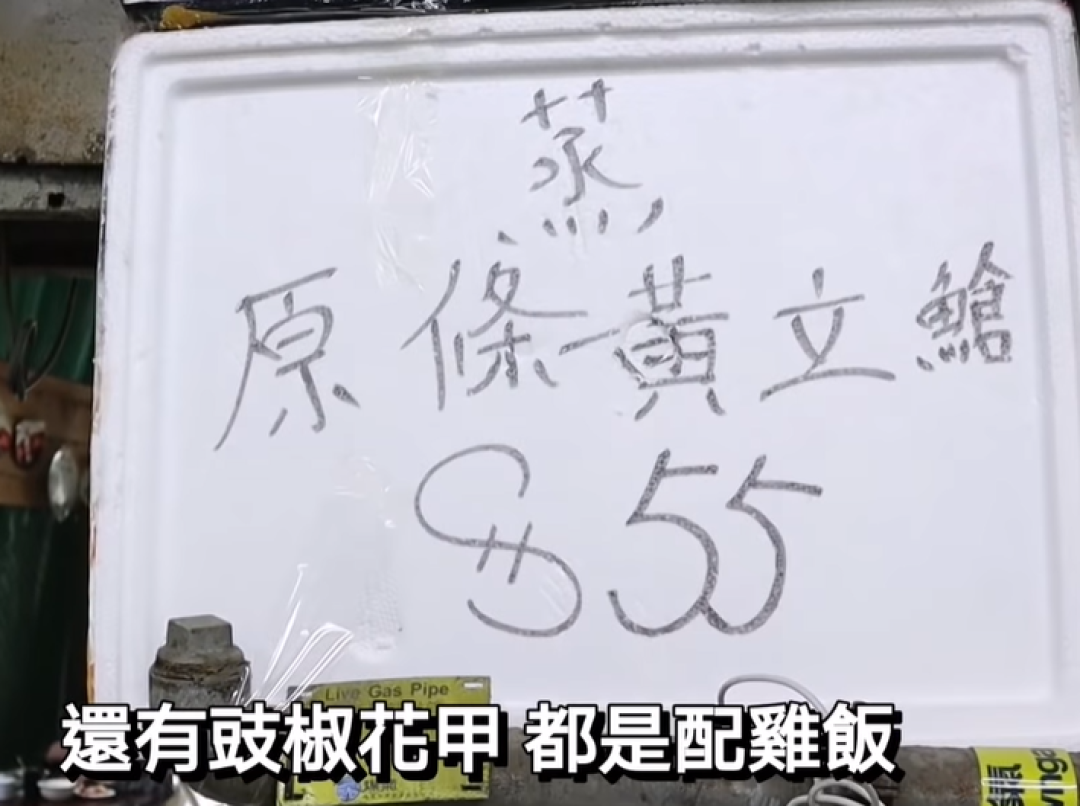 蒸
原條黃立鱠
$55
Live Gas Pipe
還有豉椒花甲 都是配雞飯